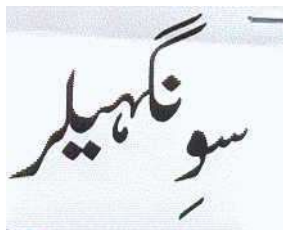 سوِنگہیلر